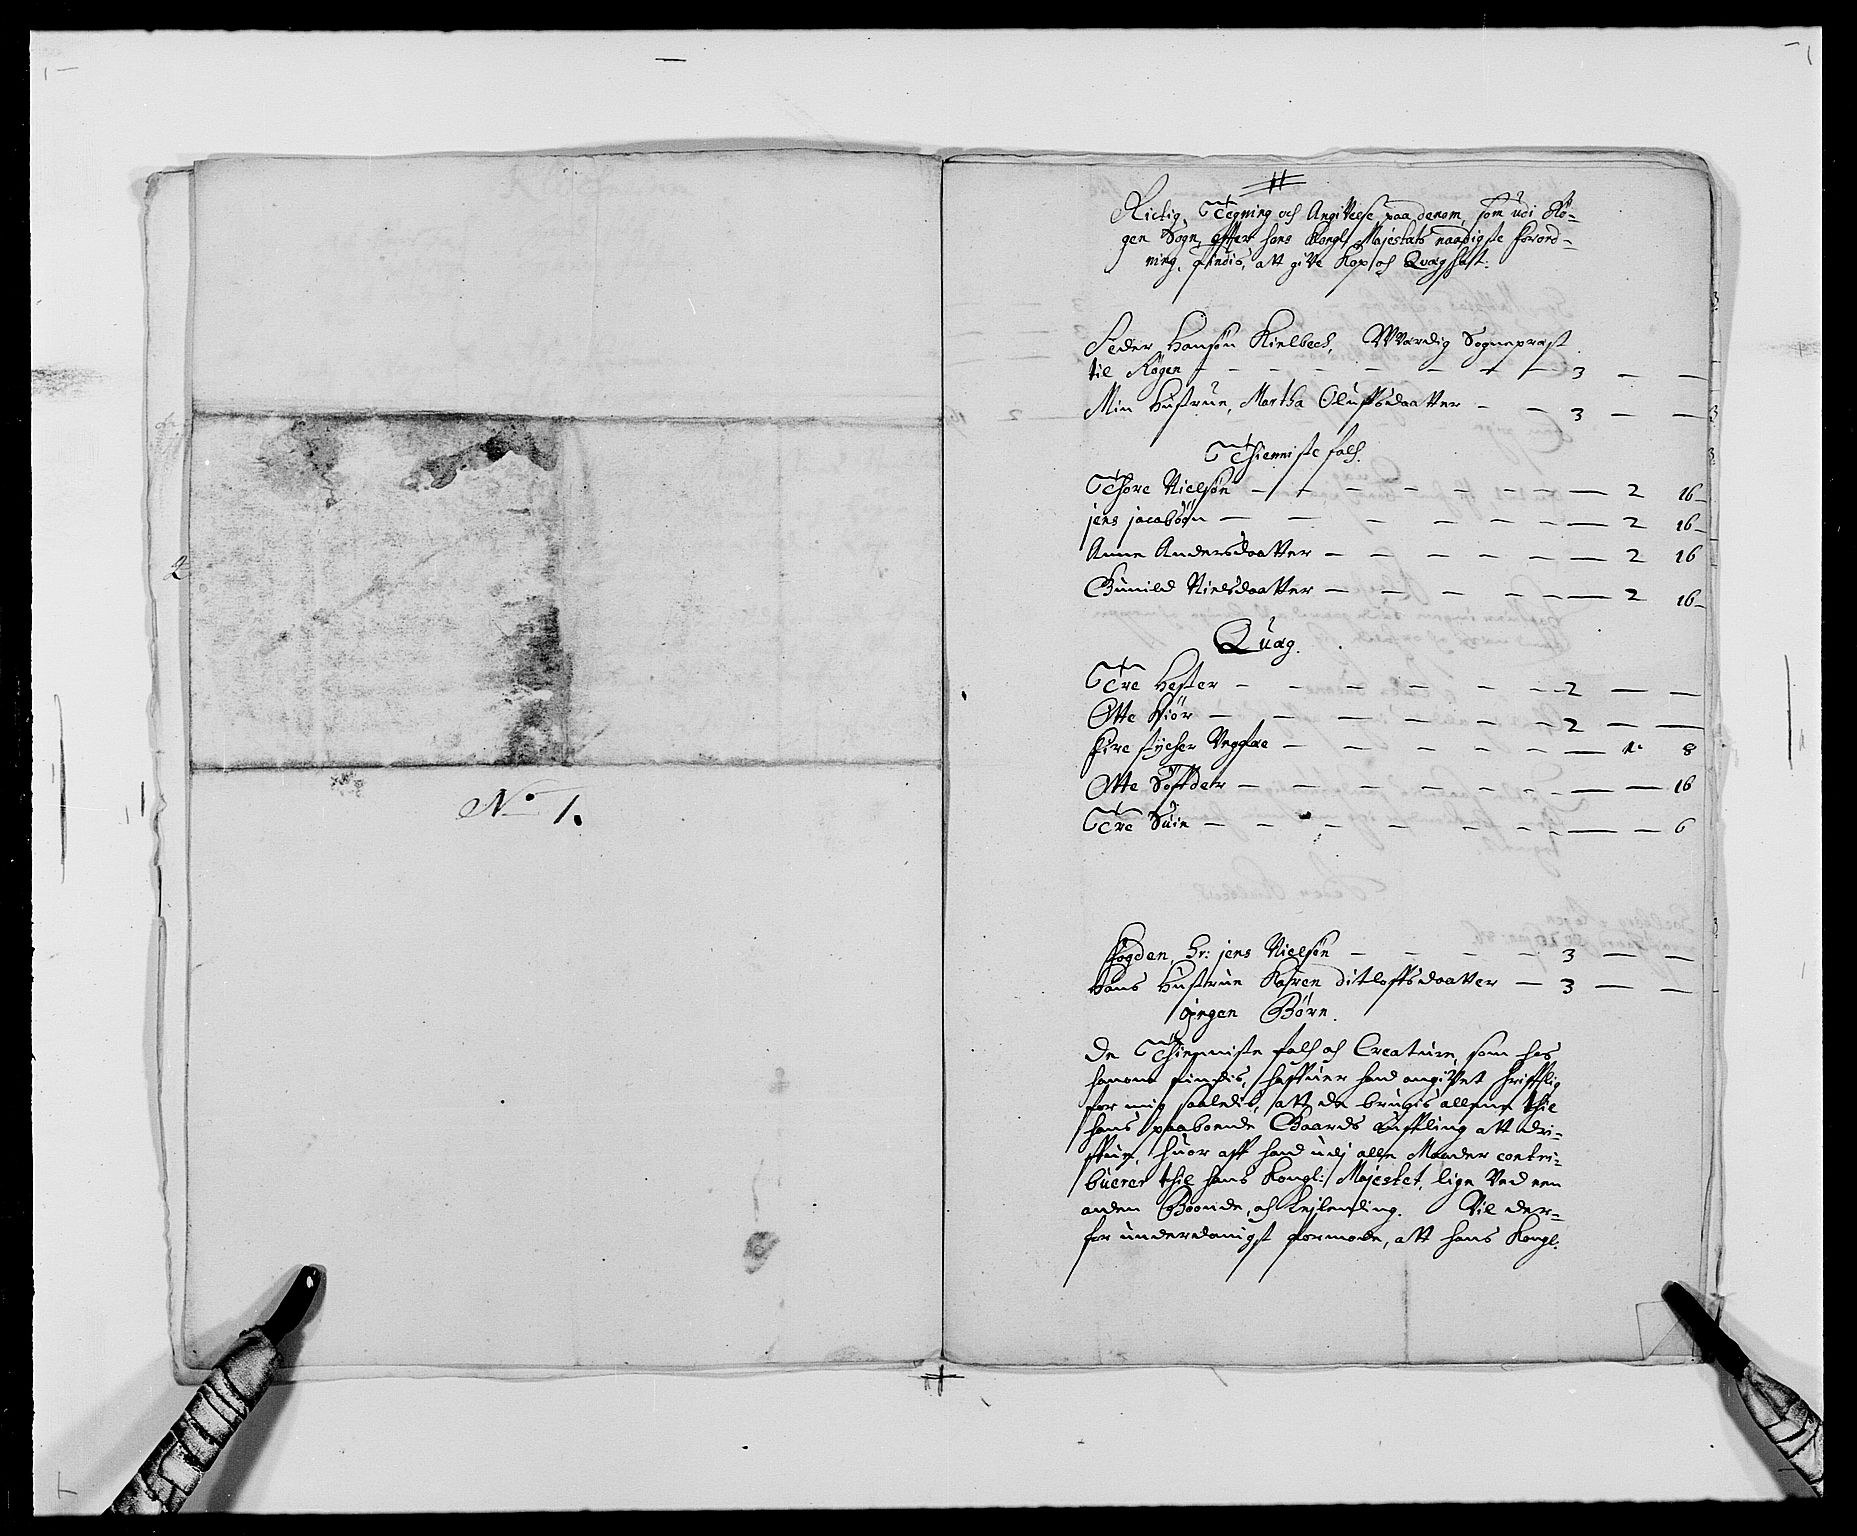 2
No 1.
Rictig Tegning och Angivelse paa denom, som udi Rø-
gen Sogn, efter hans Kongl: Majestats naadigste forord-
ning, findis, att give Kop och Quægskat:
Peder Hansøn Kielbech, Uværdig Sogneprest
til Røgen - - - - - - - 3 — —
Min Hustrue, Martha Oluffsdaatter - - 3 — —
Thienniste folch.
Thore Nielsøn - - - - - - - — 2 16
jens jacobsøn - - - - - - — 2 16
Anne Andersdaatter - - - - - — 2 16
Gunild Nielsdaatter - - - - - — 2 16
Quæg.
Tre Hester - - - - - - 2 — —
Otte Kiør - - - - - - 2 — —
fire stycher Ungfæ - - - - - - — 1 8
Otte Søffder - - - - - - — — 16
Tre Suin - - - - - - — — 6
Fogden, Sr: jens Nielsøn - - - - 3 — —
Hans Hustrue Karen ditloffsdaatter - 3 — —
jngen Børn.
De Thienniste folch och Creature, som hos
hanom findis, haffuer hand angivet skrifftlig
for mig saaledis, att de brugis allene thil
hans paaboende Gaards aufling att dri-
ffue, huor aff hand udj alle Maader contri-
buerer thil hans Kongl: Majestet, lige ved een
anden Boonde, och Leilending. Vil der-
for underdanigst formode, att hans Kongl: